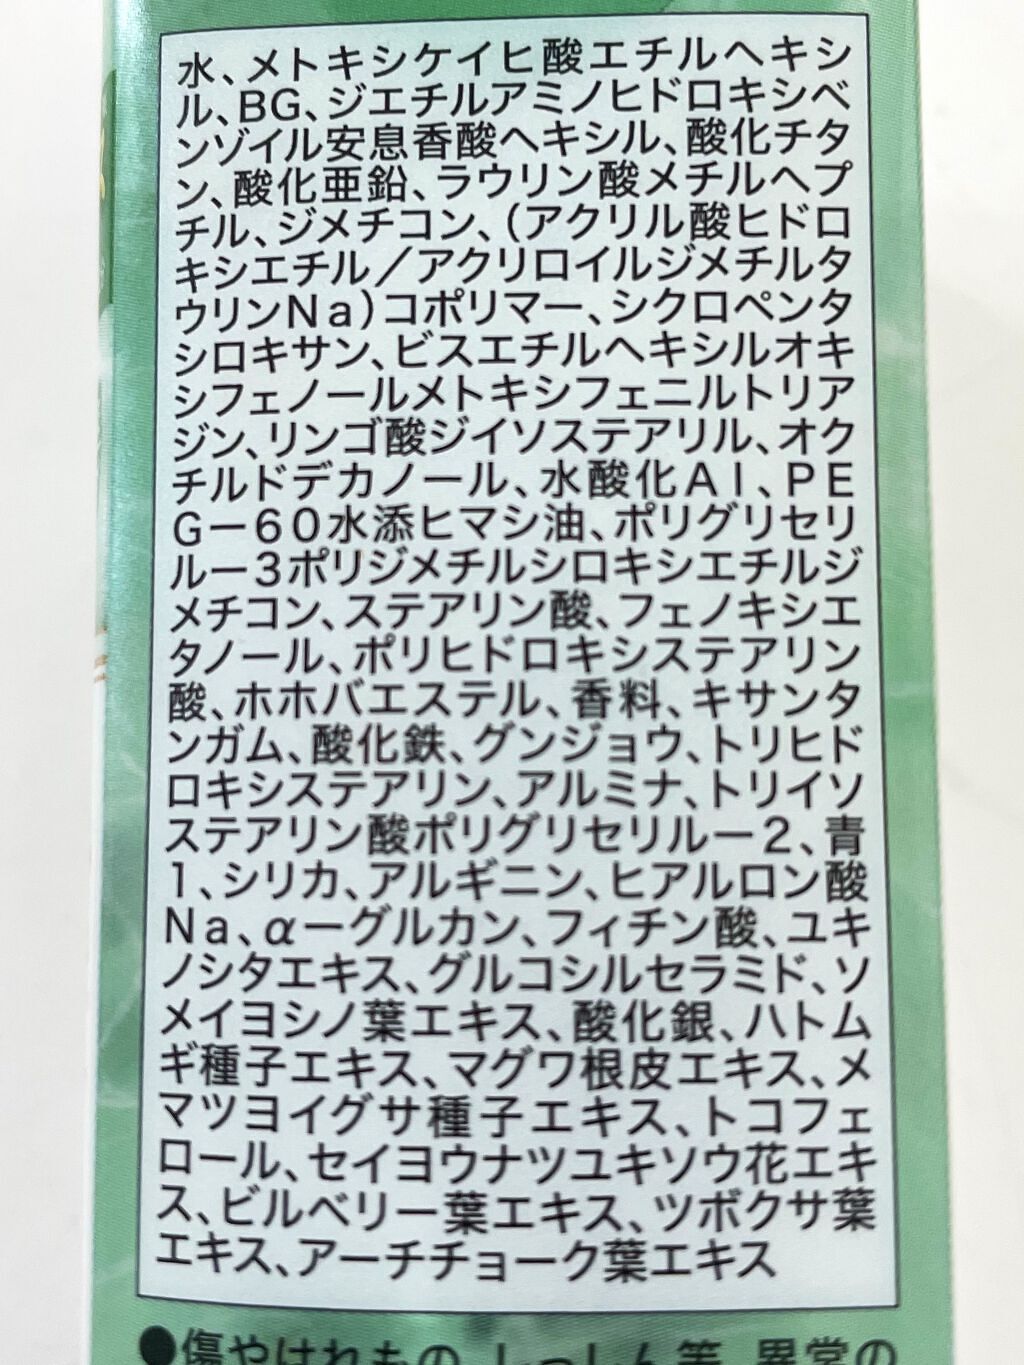 水、メトキシケイヒ酸エチルヘキシ
ル、BG、ジエチルアミノヒドロキシベ
ンゾイル安息香酸ヘキシル、酸化チタ
ン、酸化亜鉛、ラウリン酸メチルヘプ
チル、ジメチコン、(アクリル酸ヒドロ
キシエチル／アクリロイルジメチルタ
ウリンNa)コポリマー、シクロペンタ
シロキサン、ビスエチルヘキシルオキ
シフェノールメトキシフェニルトリア
ジン、リンゴ酸ジイソステアリル、オク
チルドデカノール、水酸化Al、PE
G－60水添ヒマシ油、ポリグリセリ
ル－3ポリジメチルシロキシエチルジ
メチコン、ステアリン酸、フェノキシエ
タノール、ポリヒドロキシステアリン
酸、ホホバエステル、香料、キサンタ
ンガム、酸化鉄、グンジョウ、トリヒド
ロキシステアリン、アルミナ、トリイソ
ステアリン酸ポリグリセリル－2、青
1、シリカ、アルギニン、ヒアルロン酸
Na、α－グルカン、フィチン酸、ユキ
ノシタエキス、グルコシルセラミド、ソ
メイヨシノ葉エキス、酸化銀、ハトム
ギ種子エキス、マグワ根皮エキス、メ
マツヨイグサ種子エキス、トコフェ
ロール、セイヨウナツユキソウ花エキ
ス、ビルベリー葉エキス、ツボクサ葉
エキス、アーチチョーク葉エキス
●傷やはれもの、しっしん等、異常の